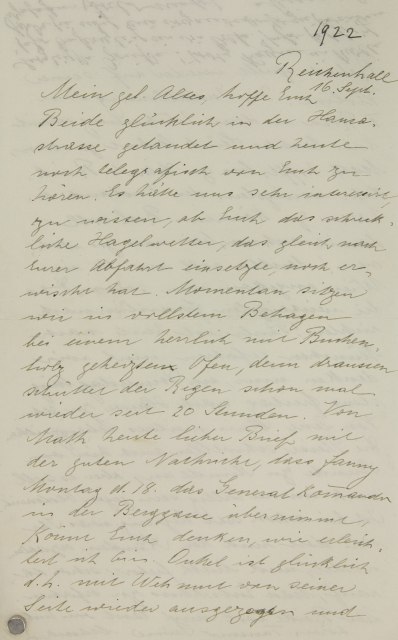 1922
Reichenhall
16. Sept.
Mein gel. Altes, hoffe Euch
Beide glücklich in der Hansa-
strasse gelandet und heute
noch telegrafisch von Euch zu
hören. Es hätte uns sehr interessirt,
zu wissen, ob Euch das schreck-
liche Hagelwetter, das gleich nach
Eurer Abfahrt einsetzte, noch er-
wischt hat. Momentan sitzen
wir in vollstem Behagen
bei einem herrlich mit Buchen-
holz geheizten Ofen, denn draussen
schüttet der Regen schon mal
wieder seit 20 Stunden. Von
Math heute lieber Brief mit
der guten Nachricht, dass Fanny
Montag d. 18. das General Komando
in der Berggasse übernimmt,
Könnt Euch denken, wie erleich-
tert ich bin Onkel ist glücklich
d.h. mit Wehmut von seiner
Seite wieder ausgezogen und